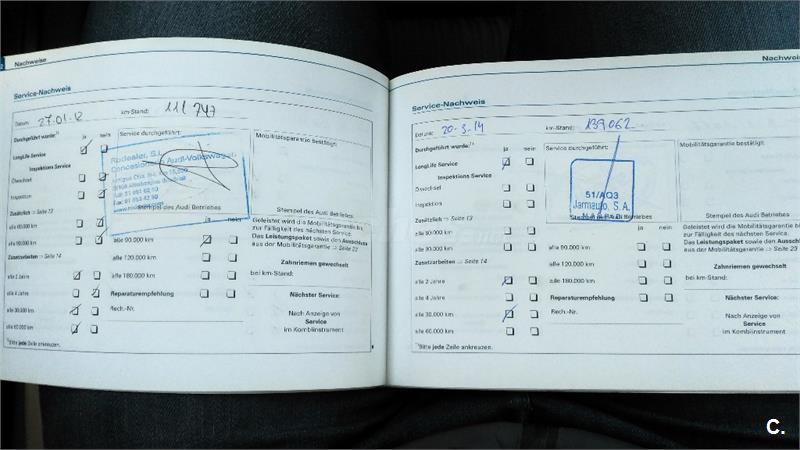 Nachweise
Service-Nachweis
Datum: 27.01.12 km-Stand: 111 747
Durchgeführt wurde:*) ja nein
LongLife Service
Inspektions Service
Ölwechsel
Inspektion
Zusätzlich ⇒ Seite 13
alle 60.000 km
alle 90.000 km
Zusatzarbeiten ⇒ Seite 14
alle 2 Jahre
alle 4 Jahre
alle 30.000 km
alle 60.000 km
*)Bitte jede Zeile ankreuzen.
Service durchgeführt:
Rodealer, S.L.
Audi-Volkswagen
Stempel des Audi Betriebes
ja nein
alle 90.000 km
alle 120.000 km
alle 180.000 km
Reparaturempfehlung
Rech.-Nr.
Mobilitätsgarantie bestätigt:
Stempel des Audi Betriebes
Geleistet wird die Mobilitätsgarantie bis
zur Fälligkeit des nächsten Service.
Das Leistungspaket sowie den Ausschluss
aus der Mobilitätsgarantie ⇒ Seite 23
Zahnriemen gewechselt
bei km-Stand:
Nächster Service:
Nach Anzeige von
Service
im Kombiinstrument
Nachweis
Service-Nachweis
Datum: 20-3-14 km-Stand: 139062
Durchgeführt wurde:*) ja nein
LongLife Service
Inspektions Service
Ölwechsel
Inspektion
Zusätzlich ⇒ Seite 13
alle 60.000 km
alle 90.000 km
Zusatzarbeiten ⇒ Seite 14
alle 2 Jahre
alle 4 Jahre
alle 30.000 km
alle 60.000 km
*)Bitte jede Zeile ankreuzen.
Service durchgeführt:
51/AQ3
Jarmauto, S.A.
Stempel des Audi Betriebes
ja nein
alle 90.000 km
alle 120.000 km
alle 180.000 km
Reparaturempfehlung
Rech.-Nr.
Mobilitätsgarantie bestätigt:
Stempel des Audi Betriebes
Geleistet wird die Mobilitätsgarantie bis
zur Fälligkeit des nächsten Service.
Das Leistungspaket sowie den Ausschluss
aus der Mobilitätsgarantie ⇒ Seite 23
Zahnriemen gewechselt
bei km-Stand:
Nächster Service:
Nach Anzeige von
Service
im Kombiinstrument
C.